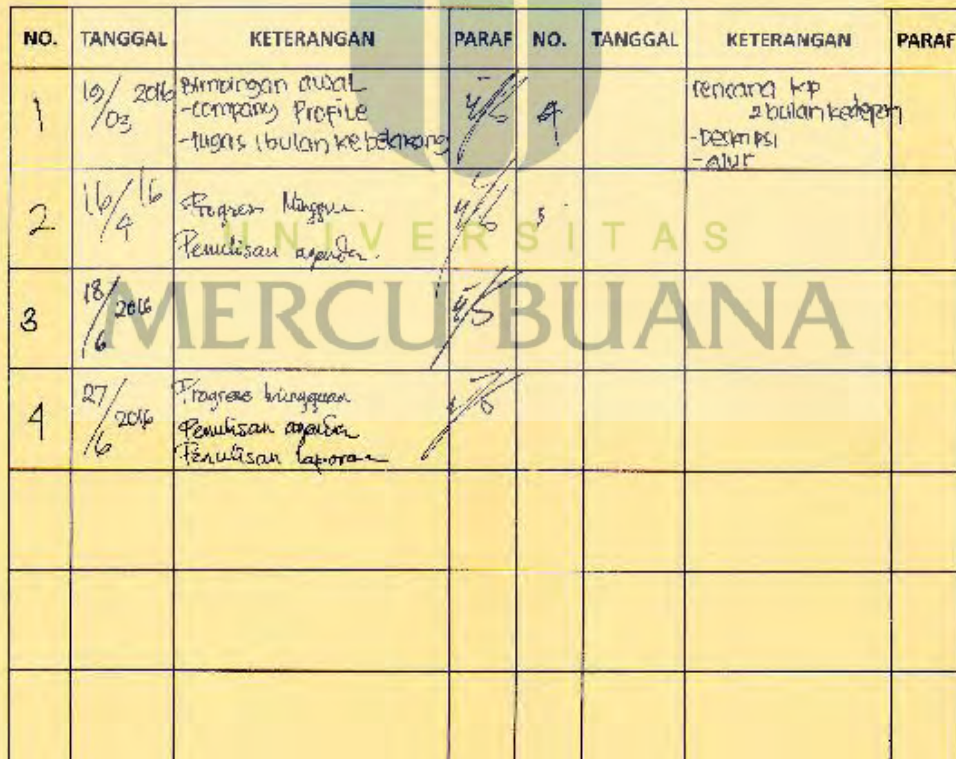 NO. TANGGAL KETERANGAN PARAF NO. TANGGAL KETERANGAN PARAF
1 19/03 2016 Bimbingan awal
-Company Profile
-tugas 1 bulan kebelakang
4 rencana kp
2 bulan kedepan
-Deskripsi
-alur
2 16/4 16 Progress
Penulisan agenda.
5
UNIVERSITAS
MERCU BUANA
3 18/6 2016
4 27/6 2016 Progress mingguan
Penulisan agenda
Penulisan laporan